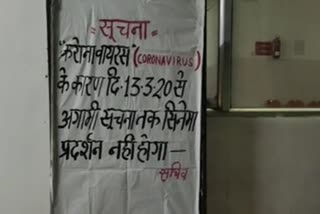 = सूचना =
"करोनावायरस" (CORONAVIRUS)
के कारण दि. 13-3-20 से
अगामी सूचना तक सिनेमा
प्रदर्शन नही होगा —
सचिव